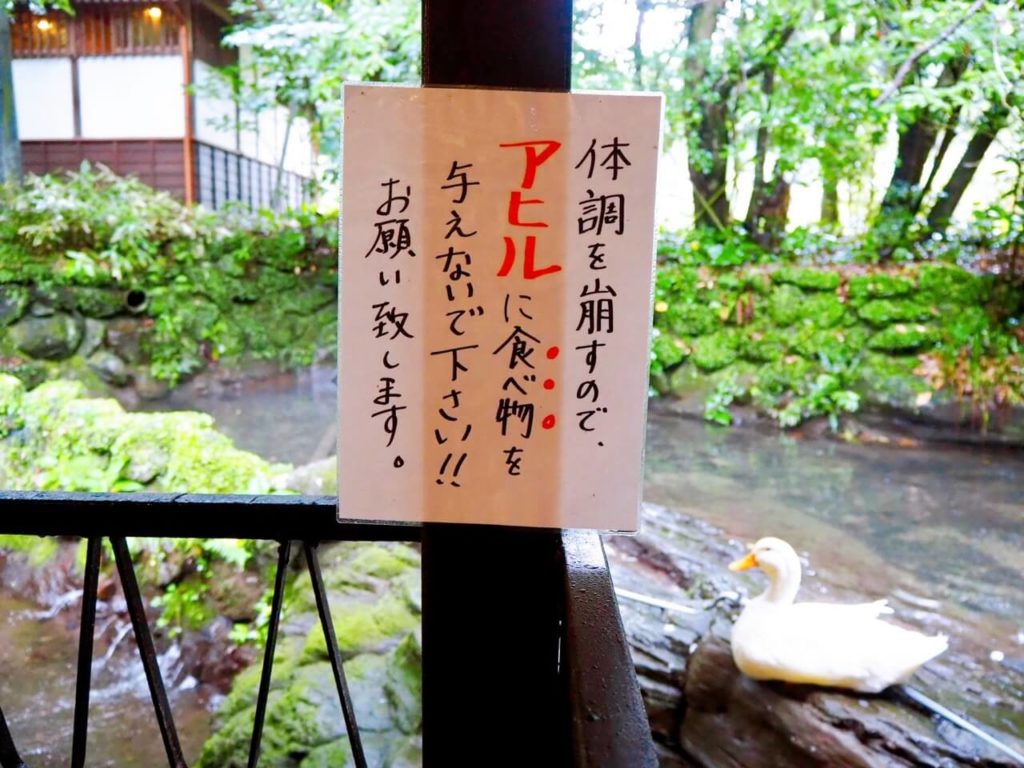 体調を崩すので、
アヒルに食べ物を
与えないで下さい!!
お願い致します。